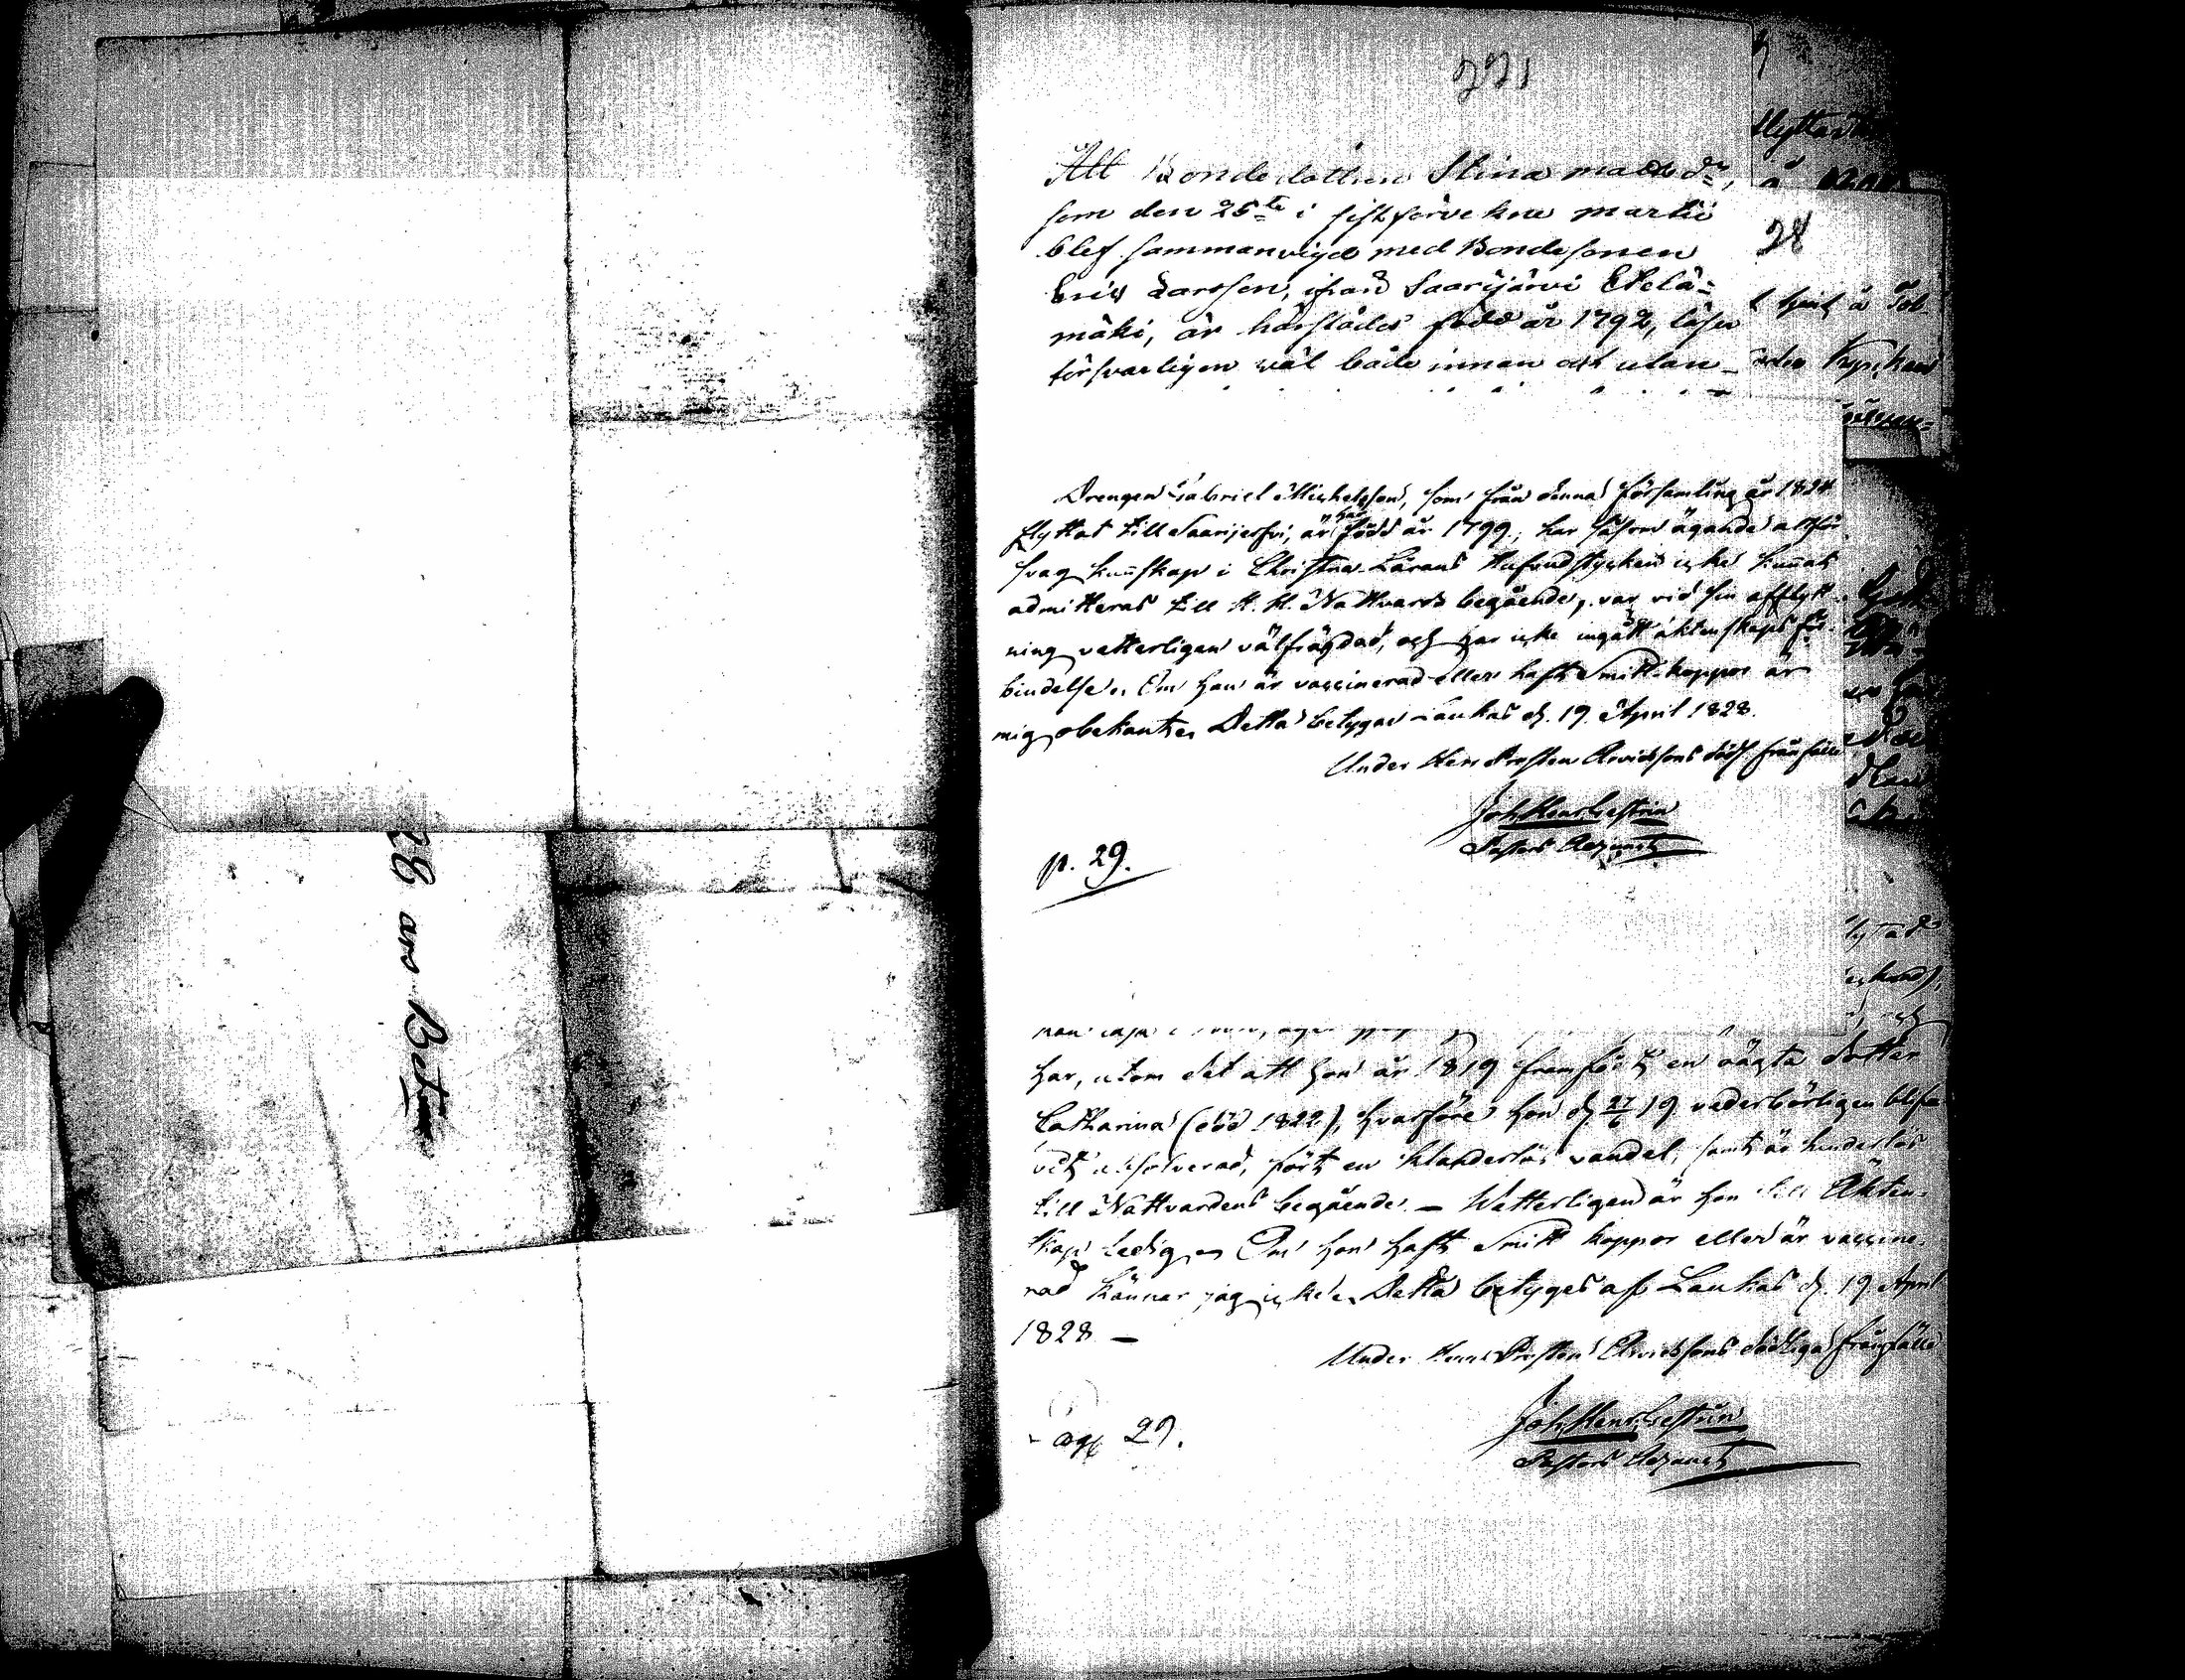 28 av B
221
Att Bondedottren Stina madsdr,
som den 25te i sistförvekne martii
blef sammanvigd med Bondesonen
Eric Larsson, ifrån Saarijärvi Etelä-
mäki, är härstädes född år 1792, läser
försvarligen väl både innan och utan-
flyttad
28
Drengen Gabriel Michelsson, som från denna församling år 1824
flyttat till Saarijerfvi, är här född år 1799, har såsom ägande alltför
svag kunskap i Christna Lärans Hufvudstycken icke kunnat
admitteras till H. H. Nattvards begående, var vid sin afflytt-
ning vetterligen välfrägdad, och har icke ingått äktenskaps för-
bindelse. Om han är vaccinerad eller haft Smitt-koppor är
mig obekant. Detta betygar Laukas d. 19 April 1828.
Under Herr Prosten Arvidssons dödl. frånfälle
Joh. Henr. Lestrin
Pastors Adjunct
p. 29.
har, utom det att hon år 1819 framfödt en oägta dotter
Catharina (död 1822), hvarföre hon d. 27/6 19 vederbörligen blif-
vit absolverad, fört en klanderlös vandel, samt är hinderlös
till Nattvardens begående. — Wetterligen är hon till Äkten-
skap ledig. Om hon haft Smitt koppor eller är vaccine-
rad känner jag icke. Detta betyges af Laukas d. 19 April
1828 —
Under Herr Prosten Arvidssons dödliga frånfälle
Joh. Henr. Lestrin
Pastors Adjunct
pag 29.